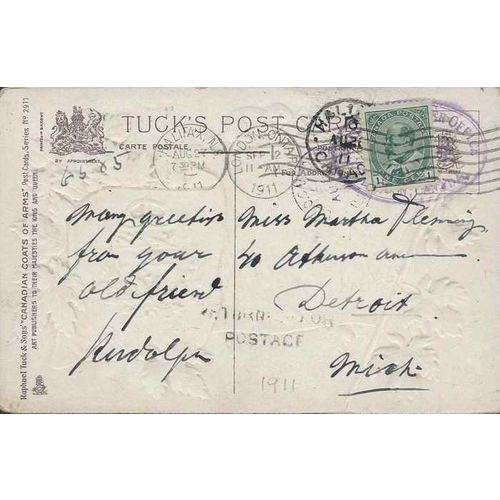 TUCK'S POST C
CARTE POSTALE
BY APPOINTMENT
FOR ADDR
Raphael Tuck & Sons' "CANADIAN COATS OF ARMS" Post Cards, Series No. 2911
ART PUBLISHERS TO THEIR MAJESTIES THE KING AND QUEEN
6585
HALIFAX N.S.
AUG 2
7-PM
1911
LONDON ONT
SEP 2
11-AM
1911
HALI
CANADA POSTAGE
Many greetings
from your
old friend
Rudolph
Miss Martha Fleming
40 Atkinson ave
Detroit
Mich
RETURNED FOR
POSTAGE
1911